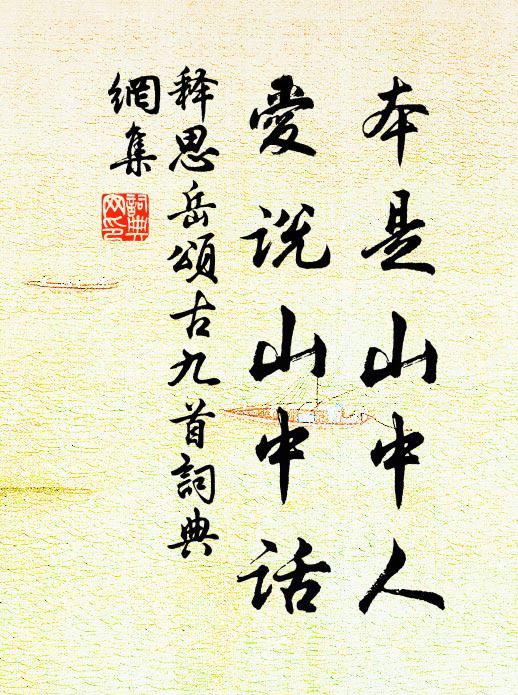 本是山中人
愛说山中话
释思岳頌古九首詞典
網集
詞典
网印